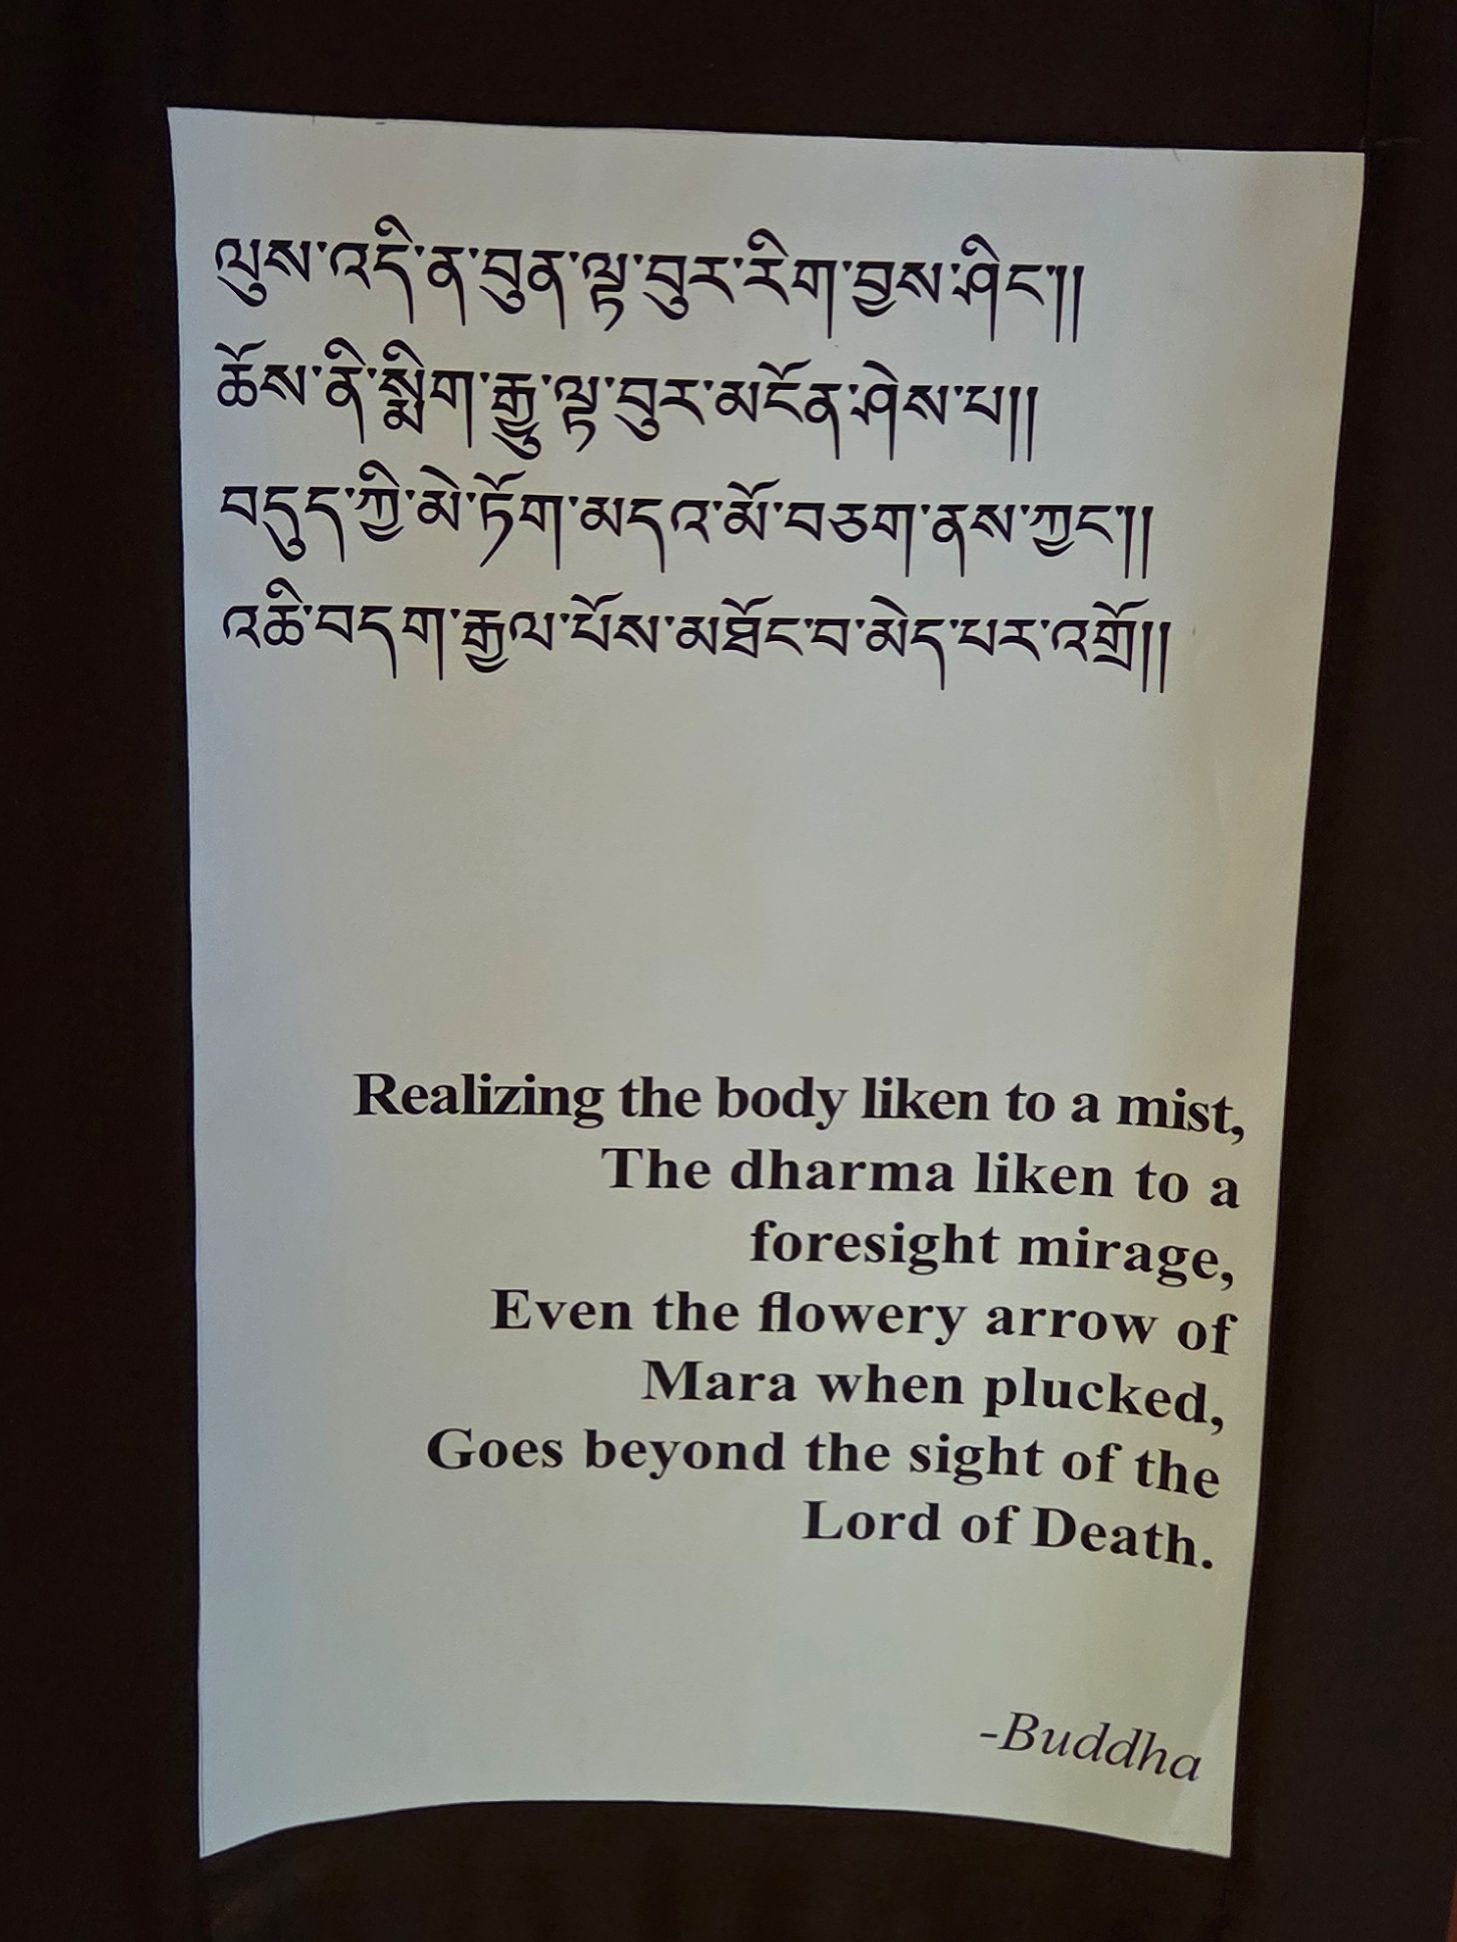 ལུས་འདི་ན་བུན་ལྟ་བུར་རིག་བྱས་ཤིང་།།
ཆོས་ནི་སྨིག་རྒྱུ་ལྟ་བུར་མངོན་ཤེས་པ།།
བདུད་ཀྱི་མེ་ཏོག་མདའ་མོ་བཅག་ནས་ཀྱང་།།
འཆི་བདག་རྒྱལ་པོས་མཐོང་བ་མེད་པར་འགྲོ།།
Realizing the body liken to a mist,
The dharma liken to a
foresight mirage,
Even the flowery arrow of
Mara when plucked,
Goes beyond the sight of the
Lord of Death.
-Buddha